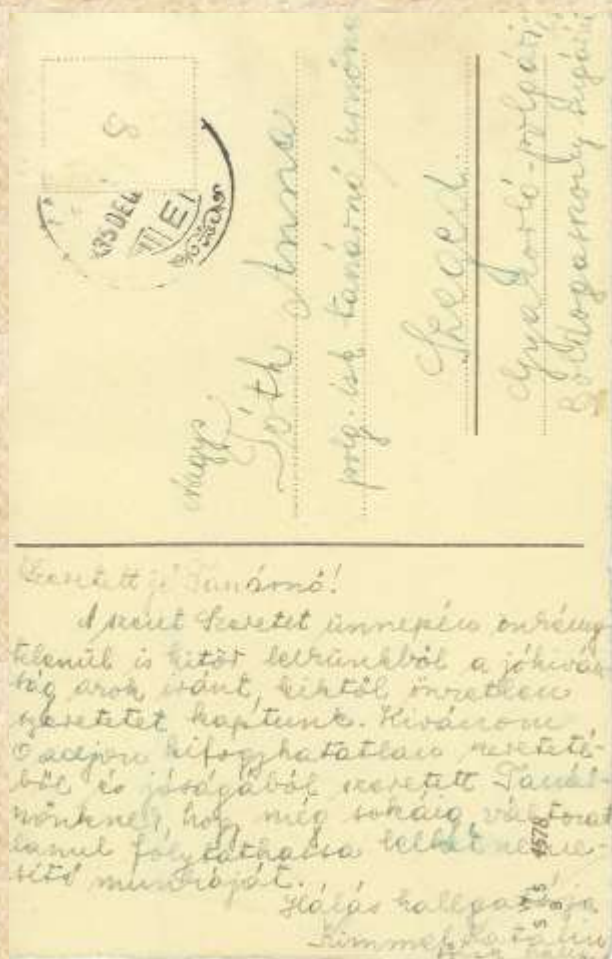 8
935 DEC
Nagys.
Tóth Anna
polg. isk. tanárnő úrnőnek
Szeged.
Gyakorló-polgári
Boldogasszony sugárút
Szeretett jó Tanárnő!
A szent Szeretet ünnepén önkény
telenül is kitör lelkünkből a jókíván
ság azok iránt, kiktől önzetlen
szeretetet kaptunk. Kívánom
Ő adjon kifogyhatatlan szereteté-
ből és jóságából szeretett Tanár
nőnknek, hogy még sokáig változat
lanul folytathassa lelket neme-
sítő munkáját.
Hálás hallgatója
Kimmel Katalin
1578